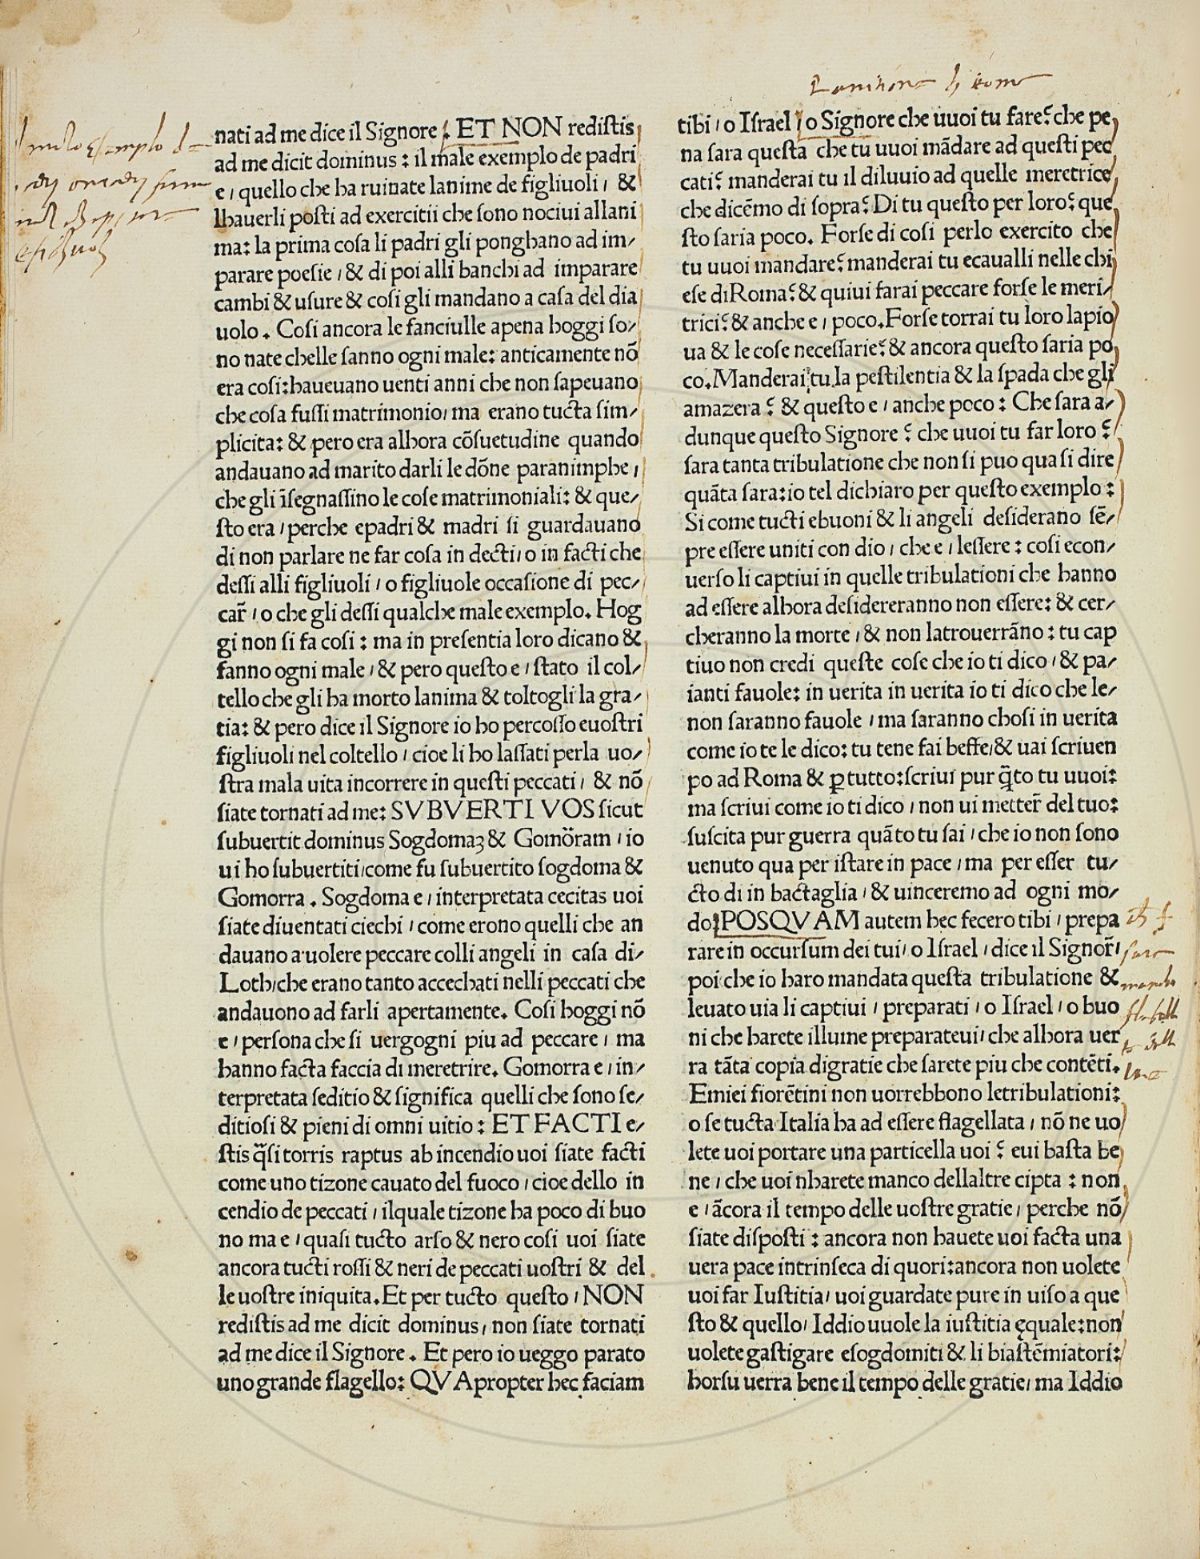 nati ad me dice il Signore / ET NON redistis
ad me dicit dominus : il male exemplo de padri
e / quello che ha ruinate lanime de figliuoli / &
lhauerli posti ad exercitii che sono nociui allani
ma: la prima cosa li padri gli ponghano ad im/
parare poesie / & di poi alli banchi ad imparare
cambi & usure & cosi gli mandano a casa del dia
uolo . Cosi ancora le fanciulle apena hoggi so/
no nate chelle sanno ogni male: anticamente nō
era cosi: haueuano uenti anni che non sapeuano
che cosa fussi matrimonio / ma erano tucta sim/
plicita: & pero era alhora cōsuetudine quando
andauano ad marito darli le dōne paranimphe /
che gli īsegnassino le cose matrimoniali: & que/
sto era / perche epadri & madri si guardauano
di non parlare ne far cosa in decti / o in facti che
dessi alli figliuoli / o figliuole occasione di pec/
car̄ / o che gli dessi qualche male exemplo. Hog
gi non si fa cosi : ma in presentia loro dicano &
fanno ogni male / & pero questo e / stato il col/
tello che gli ha morto lanima & toltogli la gra/
tia: & pero dice il Signore io ho percosso euostri
figliuoli nel coltello / cioe li ho lassati perla uo/
stra mala uita incorrere in questi peccati / & nō
siate tornati ad me: SVBVERTI VOS sicut
subuertit dominus Sogdomaꝫ & Gomōram / io
ui ho subuertiti / come fu subuertito sogdoma &
Gomorra . Sogdoma e / interpretata cecitas uoi
siate diuentati ciechi / come erono quelli che an
dauano a uolere peccare colli angeli in casa di/
Loth / che erano tanto accechati nelli peccati che
andauono ad farli apertamente. Cosi hoggi nō
e / persona che si uergogni piu ad peccare / ma
hanno facta faccia di meretrire. Gomorra e / in/
terpretata seditio & significa quelli che sono se/
ditiosi & pieni di omni uitio : ET FACTI e/
stis q̄si torris raptus ab incendio uoi siate facti
come uno tizone cauato del fuoco / cioe dello in
cendio de peccati / ilquale tizone ha poco di buo
no ma e / quasi tucto arso & nero cosi uoi siate
ancora tucti rossi & neri de peccati uostri & del
le uostre iniquita. Et per tucto questo / NON
redistis ad me dicit dominus / non siate tornati
ad me dice il Signore . Et pero io ueggo parato
uno grande flagello: QVApropter hec faciam
tibi / o Israel / o Signore che uuoi tu fare? che pe
na sara questa che tu uuoi mādare ad questi pec
cati? manderai tu il diluuio ad quelle meretrice
che dicēmo di sopra? Di tu questo per loro? que
sto saria poco. Forse di cosi perlo exercito che
tu uuoi mandare? manderai tu ecaualli nelle chi
ese di Roma? & quiui farai peccare forse le meri/
trici? & anche e / poco. Forse torrai tu loro lapio
ua & le cose necessarie? & ancora questo saria po
co. Manderai tu la pestilentia & la spada che gli
amazera ? & questo e / anche poco : Che sara a/
dunque questo Signore ? che uuoi tu far loro ?
sara tanta tribulatione che non si puo quasi dire
quāta sara: io tel dichiaro per questo exemplo :
Si come tucti ebuoni & li angeli desiderano sē/
pre essere uniti con dio / che e / lessere : cosi econ/
uerso li captiui in quelle tribulationi che hanno
ad essere alhora desidereranno non essere: & cer/
cheranno la morte / & non latrouerrāno : tu cap
tiuo non credi queste cose che io ti dico / & pa/
ianti fauole: in uerita in uerita io ti dico che le/
non saranno fauole / ma saranno chosi in uerita
come io te le dico: tu tene fai beffe / & uai scriuen
po ad Roma & ꝑ tutto: scriui pur q̄to tu uuoi:
ma scriui come io ti dico / non ui metter̄ del tuo:
suscita pur guerra quāto tu sai / che io non sono
uenuto qua per istare in pace / ma per esser tu/
cto di in bactaglia / & uinceremo ad ogni mo/
do / POSQVAM autem hec fecero tibi / prepa
rare in occursum dei tui / o Israel / dice il Signor̄ /
poi che io haro mandata questa tribulatione &
leuato uia li captiui / preparati / o Israel / o buo
ni che harete illume preparateui / che alhora uer
ra tāta copia digratie che sarete piu che contēti.
Emiei fiorētini non uorrebbono letribulationi:
o se tucta Italia ha ad essere flagellata / nō ne uo
lete uoi portare una particella uoi ? eui basta be
ne / che uoi nharete manco dellaltre cipta : non
e / ācora il tempo delle uostre gratie / perche nō
siate disposti : ancora non hauete uoi facta una
uera pace intrinseca di quori: ancora non uolete
uoi far Iustitia / uoi guardate pure in uiso a que
sto & quello / Iddio uuole la iustitia ęquale: non
uolete gastigare esogdomiti & li biastēmiatori:
horsu uerra bene il tempo delle gratie / ma Iddio